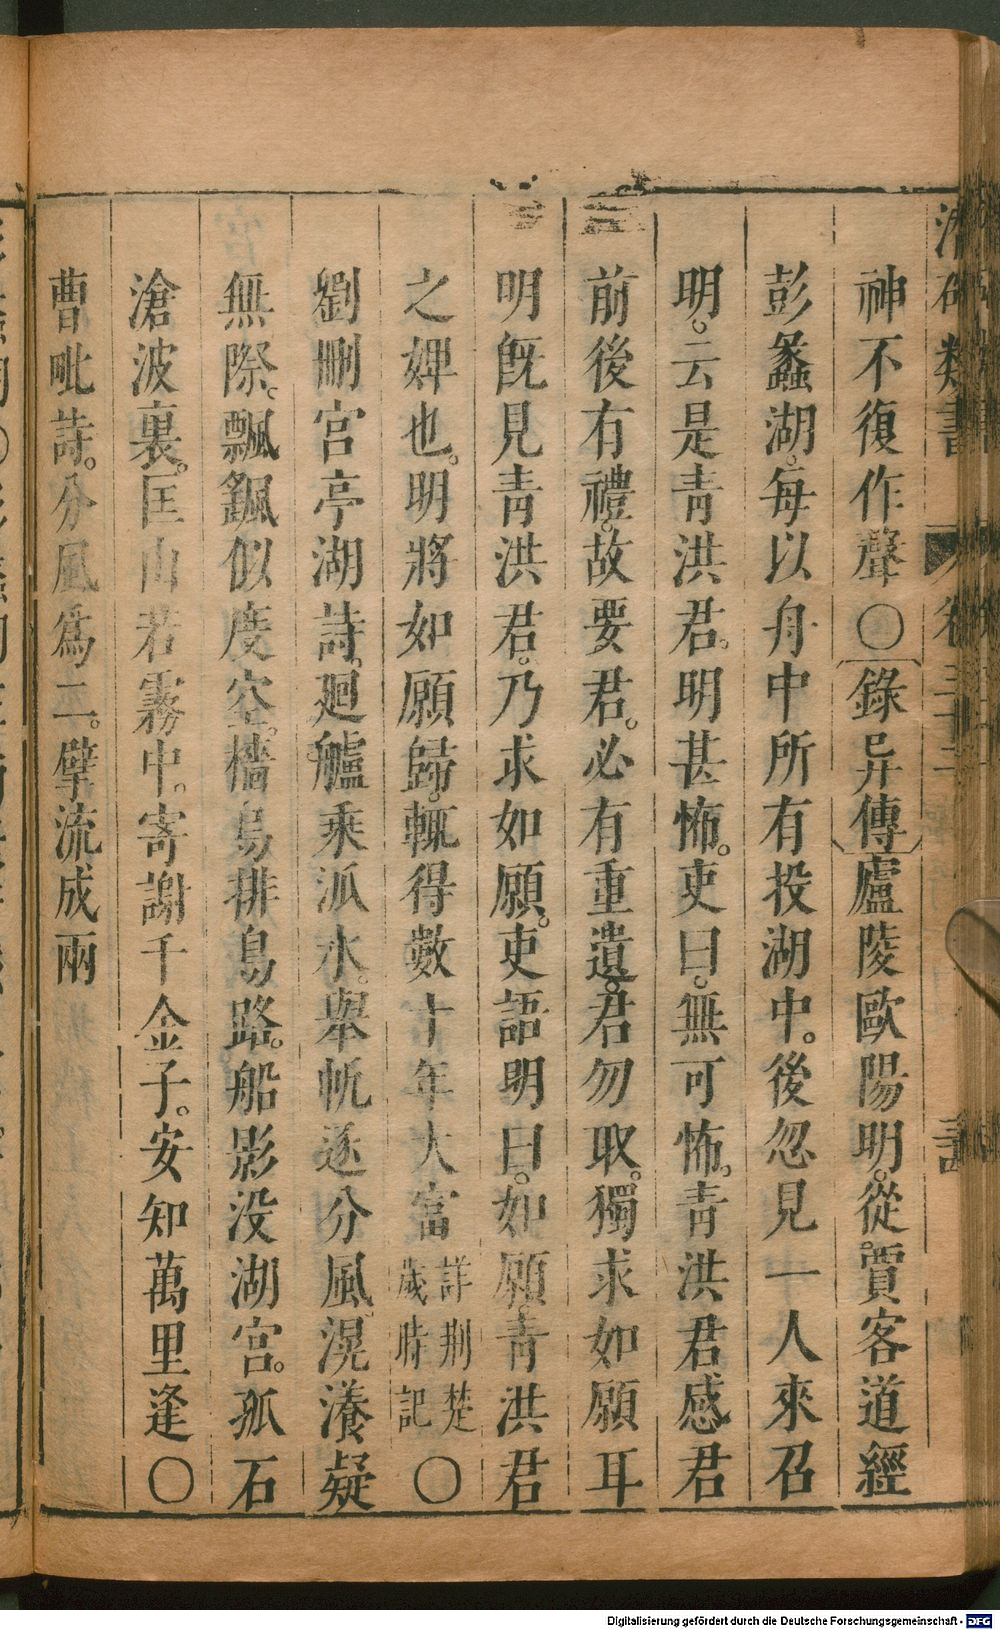 神不復作聲○錄异傳廬陵歐陽明。從賈客道經
彭蠡湖。每以舟中所有投湖中。後忽見一人來召
明。云是青洪君。明甚怖。吏曰。無可怖。青洪君感君
前後有禮。故要君。必有重遺。君勿取。獨求如願耳
明旣見青洪君。乃求如願。吏語明曰。如願。青洪君
之婢也。明將如願歸。輒得數十年大富詳荆楚歲時記○
劉刪宮亭湖詩。廻艫乘派水。舉帆逐分風。滉瀁疑
無際。飄颻似度空。檣烏排鳥路。船影没湖宮。孤石
滄波裏。匡山若霧中。寄謝千金子。安知萬里逢○
曹毗詩。分風爲二。擘流成兩
類書
卷三十二
Digitalisierung gefördert durch die Deutsche Forschungsgemeinschaft - DFG